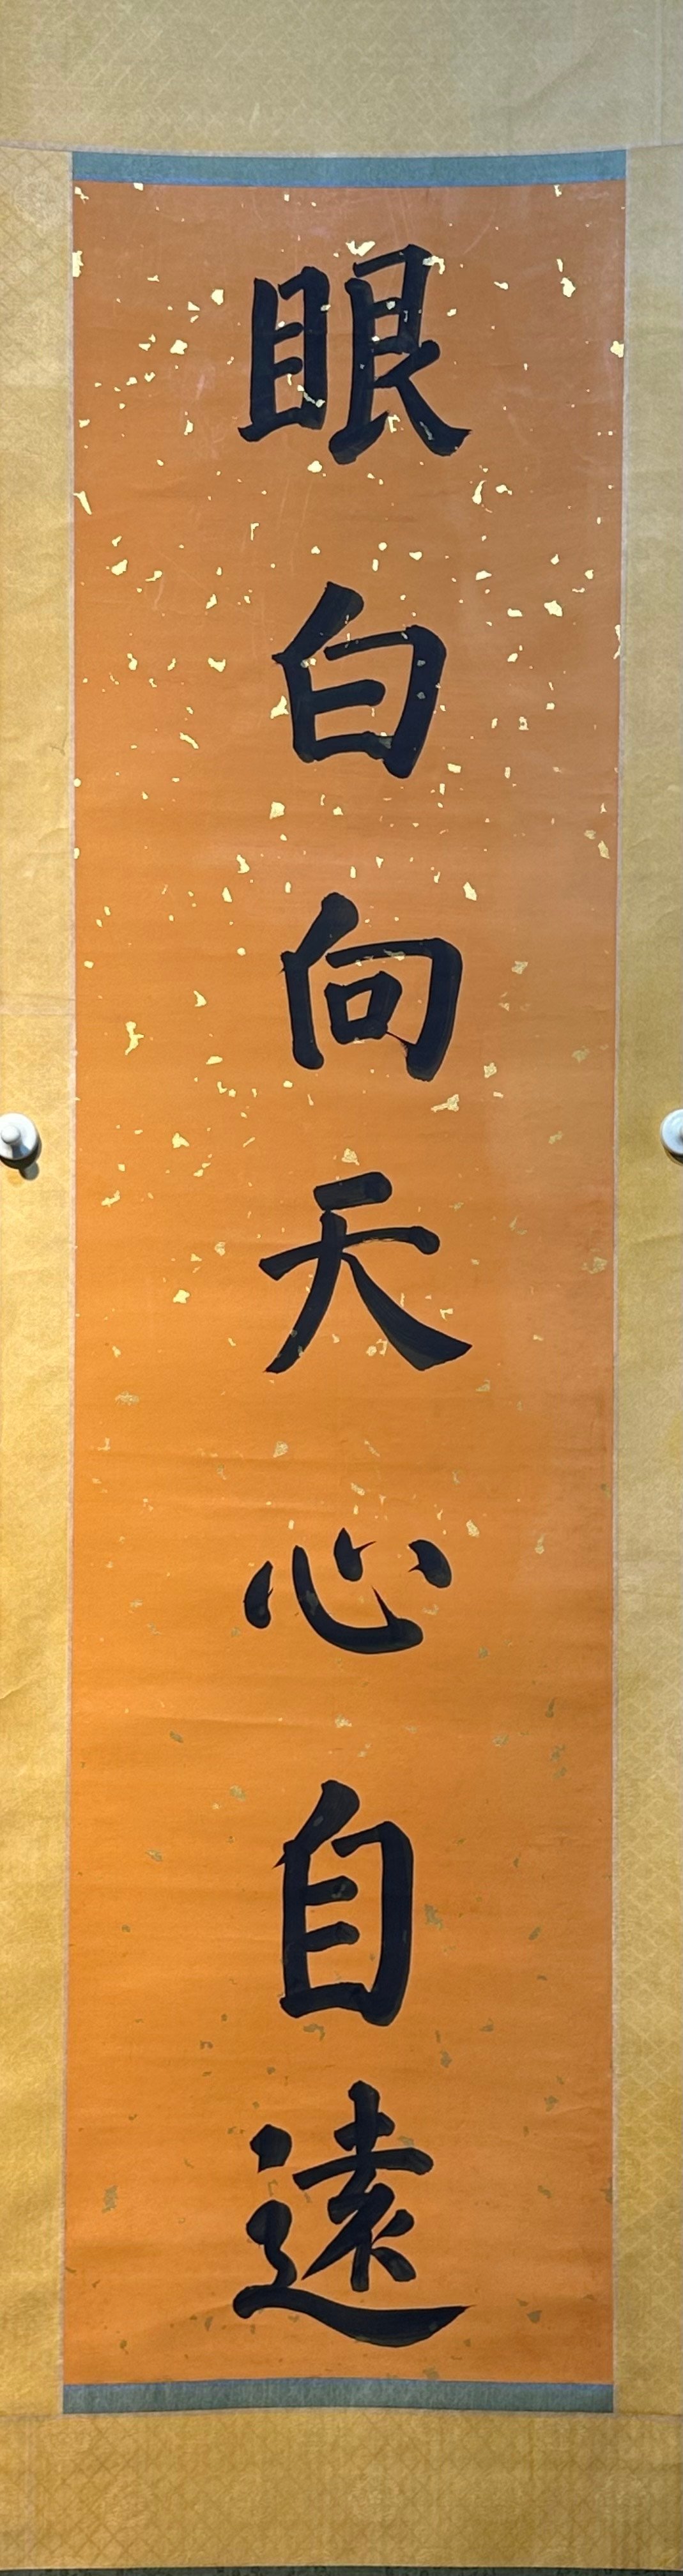 眼白向天心自遠